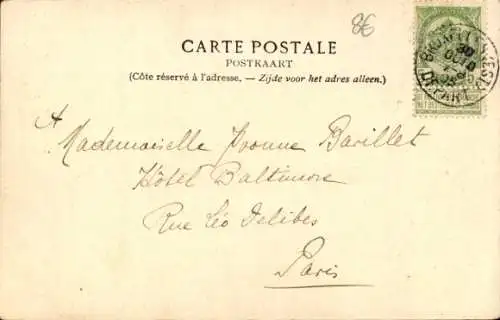 8E
CARTE POSTALE
POSTKAART
(Côte réservé à l'adresse. — Zijde voor het adres alleen.)
BRUXELLES
30
OCTO
DÉPART
5
A
Mademoiselle Yvonne Barillet
Hôtel Baltimore
Rue Léo Delibes
Paris